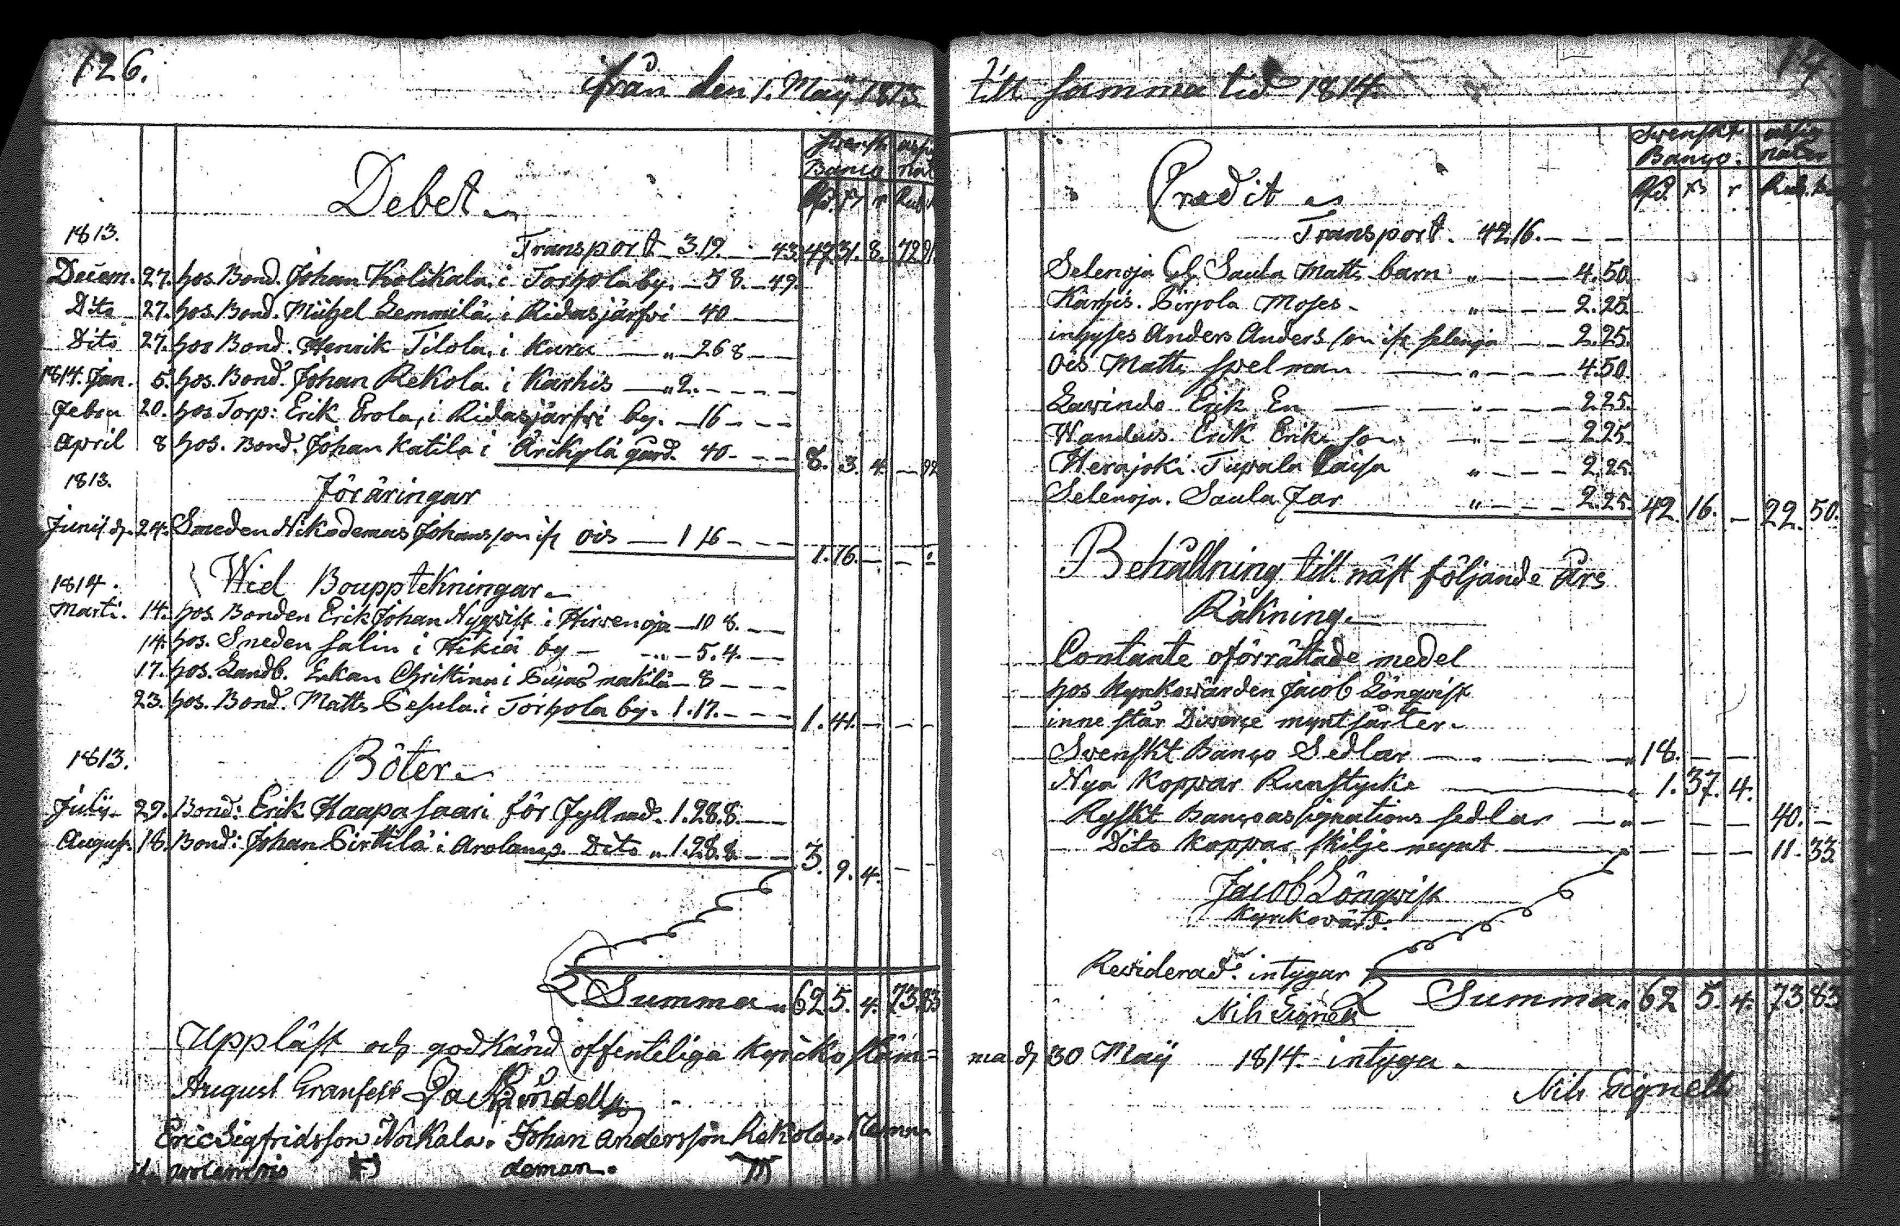 126.
ifrån den 1. Maÿ 1813
Svenskt assig
Banco nat
Debet
Rd. ß r Rub.
1813.
Transport 3.19. 43. 47.31.8. 72.91
Decem. 27. hos. Bond. Johan Kolikala. i Torhola by. 38. 49.
Dito 27. hos. Bond. Michel Lemmilä, i Ridasjärfvi 40
Dito 27. hos Bond. Henrik Tilola, i Kuru 26 8
1814. Jan. 5. hos. Bond. Johan Rekola i Karhis 2.
Febru 20. hos Torp: Erik Erola, i Ridasjärfvi by. 16
April 8 hos. Bond. Johan Katila i gård. 40. 8. 3. 4. 92
1813.
Föräringar
Junii d. 24. Smeden Nikodemus Johansson ifr. Ois 1 16 1.16.
1814.
Wid Bouppteckningar
Marti. 14. hos. Bonden Erik Johan Nyqvist i Hirvenoja 10 8.
14. hos. Smeden Salin i Hikiä by 5.4.
17. hos. Landb. Enkan Christina i 8
23. hos. Bond. Matts i Torhola by. 1.17. 1.41.
1813.
Böter
Julÿ 29. Bond: Erik Haapasaari för Fyllerad. 1.28.8.
August. 18. Bond: Johan Pirttilä i Dito 1.28.8. 3. 9. 4.
Summa 62 5. 4. 73.83
Uppläst och godkänd offenteliga kyrko stäm=
August Granfelt
Eric Sigfridsson Norkala. Johan Andersson Rekola.
deman.
till samma tid 1814.
Svenskt assig
Banco. nater
Credit
Rd. ß r Rub. k
Transport. 42 16.
Selenoja Saula Matts barn 4.50.
Karhis. Pirjola Moses 2.25.
inhyses Anders Andersson ifr. Selenoja 2.25.
Ois Matts Spelman 4.50.
Lavinda Erik En 2.25.
Erik Eriksson 2.25.
Herajoki. Tupala Caisa 2.25.
Selenoja. Saula Far 2.25. 42. 16. 22. 50.
Behållning till näst följande års
Räkning.
Contante oförrättade medel
hos Kyrkovärden Jacob Lönqvist
inne står Diverse myntsårter
Svenskt Banco Sedlar 18.
Nya Koppar Runstycke 1. 37. 4.
Ryskt Bancoassignations sedlar 40.
Dito Koppar skilje mynt 11. 33.
Jacob Lönqvist
Kyrkovärd.
Reviderad: intygar
Nils Signell
Summa 62 5 4. 73.83
ma d. 30 Maÿ 1814. intyga
Nils Signell